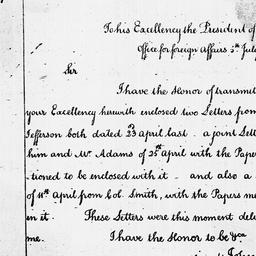 To his Excellency the President of
Office for foreign Affairs 5th July
Sir
I have the Honor of transmit
your Excellency herewith enclosed two Letters from
Jefferson both dated 23 April last - a joint Lett
him and Mr Adams of 25th April with the Pape
tioned to be enclosed with it - and also a
of 11th April from Col. Smith, with the Papers me
in it. These Letters were this moment deli
me. I have the Honor to be &ca